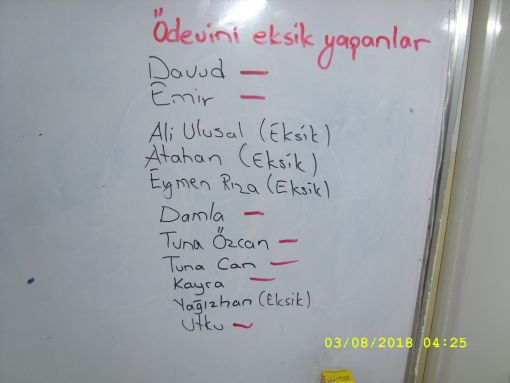 Ödevini eksik yapanlar
Davud —
Emir —
Ali Ulusal (Eksik)
Atahan (Eksik)
Eymen Rıza (Eksik)
Damla —
Tuna Özcan —
Tuna Can —
Kayra —
Yağızhan (Eksik)
Utku —
03/08/2018 04:25